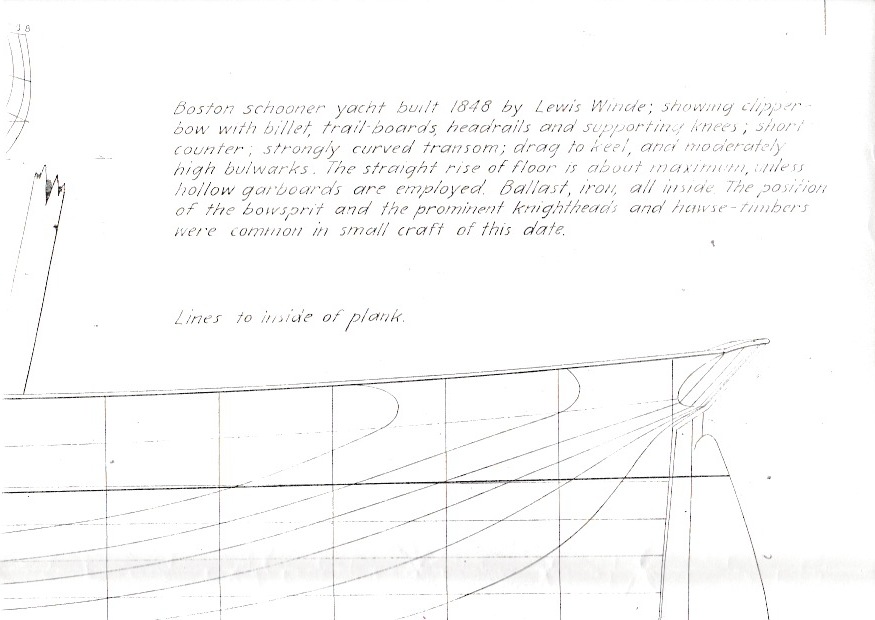 Boston schooner yacht built 1848 by Lewis Winde; showing clipper-
bow with billet, trail-boards, headrails and supporting knees; short
counter; strongly curved transom; drag to keel, and moderately
high bulwarks. The straight rise of floor is about maximum, unless
hollow garboards are employed. Ballast, iron, all inside. The position
of the bowsprit and the prominent knightheads and hawse-timbers
were common in small craft of this date.
Lines to inside of plank.